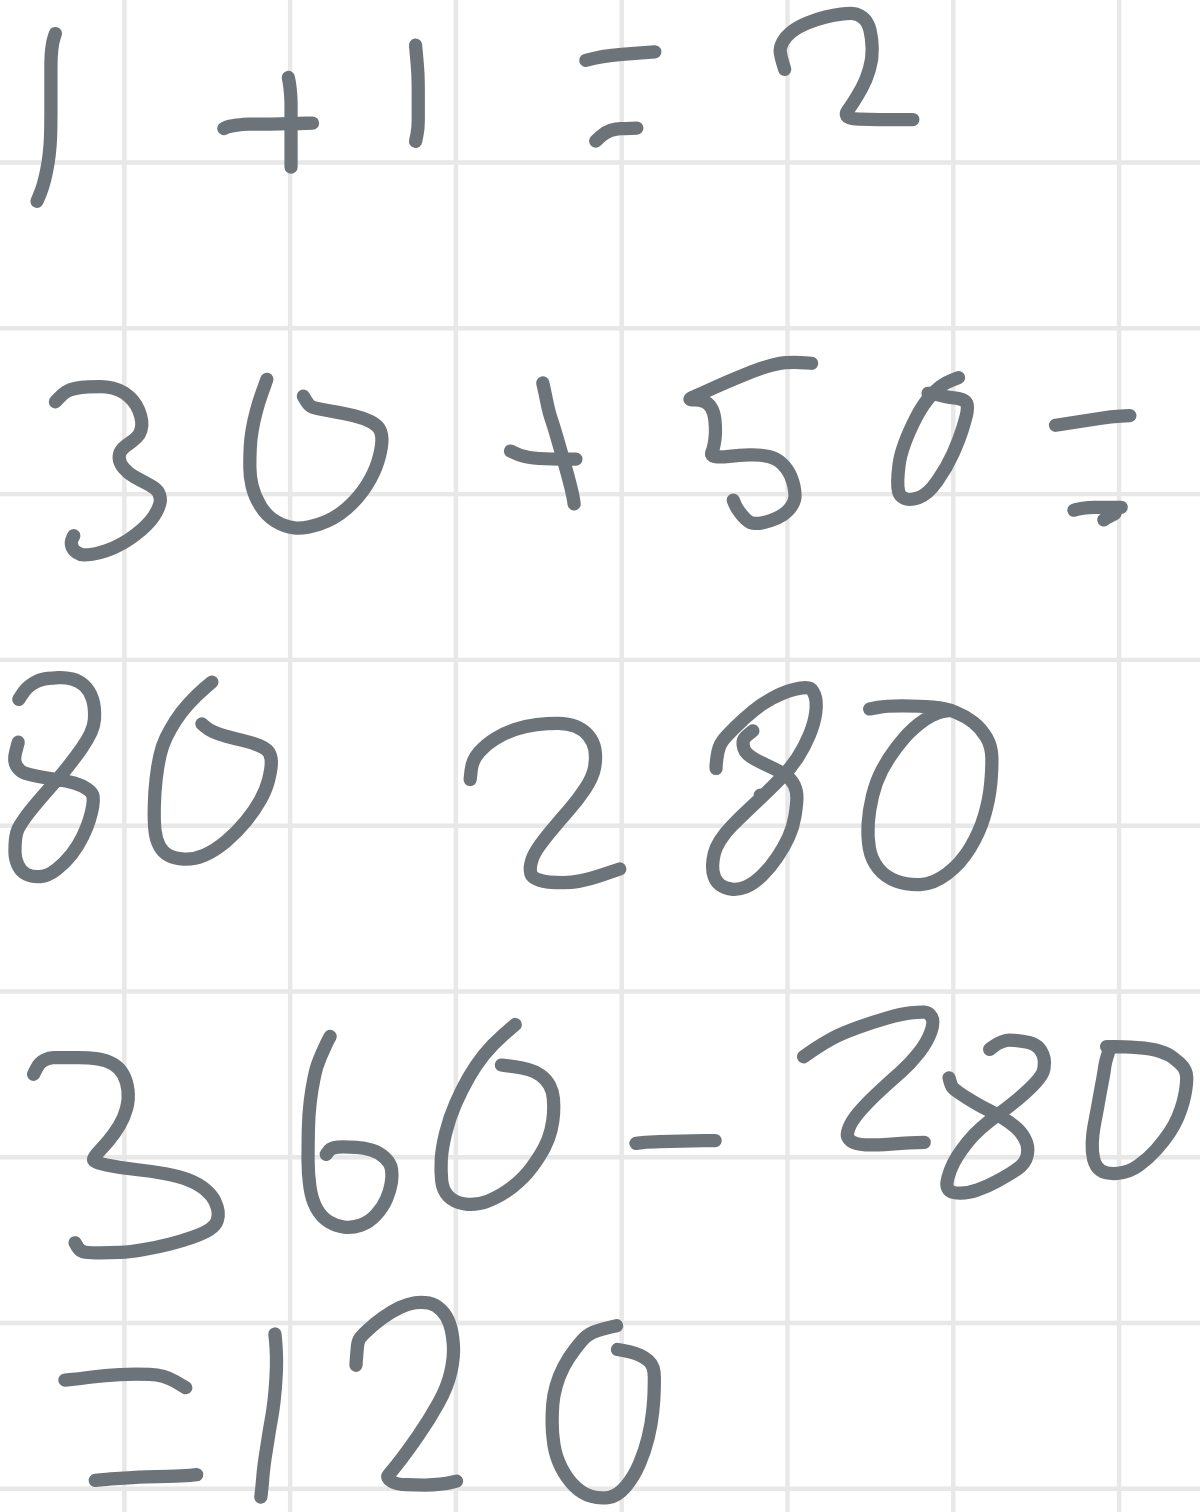 1 + 1 = 2
30 + 50 =
80 280
360 - 280
= 120